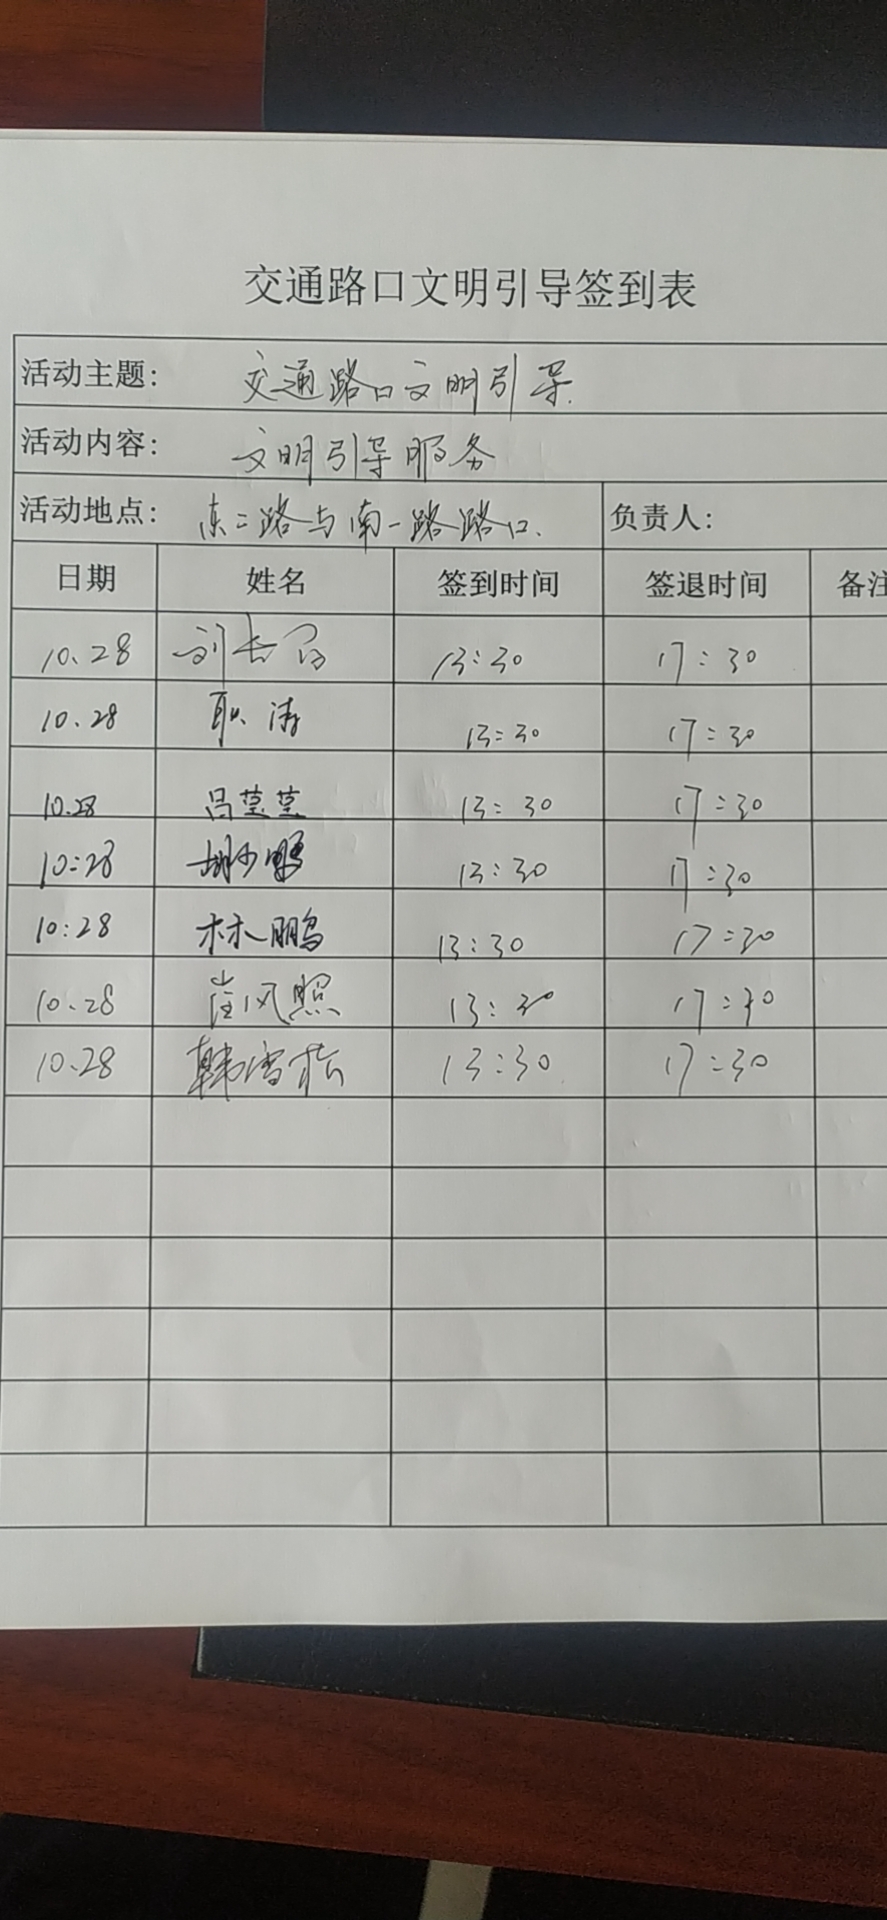 交通路口文明引导签到表
活动主题: 交通路口文明引导.
活动内容: 文明引导服务
活动地点: 东二路与南一路路口. 负责人:
日期 姓名 签到时间 签退时间 备注
10.28 13:30 17:30
10.28 职涛 13:30 17:30
10.28 吕莹莹 13:30 17:30
10:28 13:30 17:30
10:28 林鹏 13:30 17:30
10.28 崔风照 13:30 17:30
10.28 韩雪松 13:30 17:30